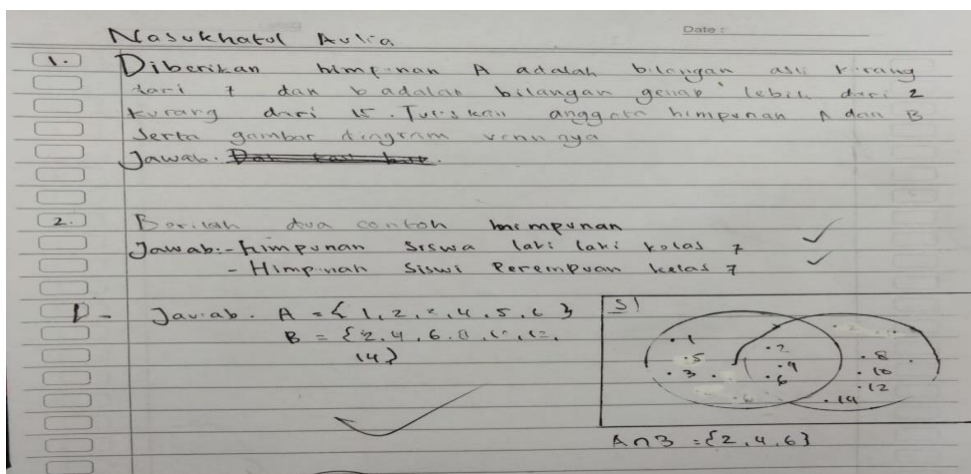 Nasukhatul Aulia
Date :
1. Diberikan himpunan A adalah bilangan asli kurang
dari 7 dan b adalah bilangan genap lebih dari 2
kurang dari 15. Tuliskan anggota himpunan A dan B
serta gambar diagram venn nya
Jawab.
2. Berilah dua contoh himpunan
Jawab:- himpunan siswa laki laki kelas 7
- Himpunan Siswi Perempuan kelas 7
1- Jawab. A = { 1, 2, 3, 4, 5, 6 }
B = { 2, 4, 6, 8, 10, 12,
14 }
S
. 1
. 5
. 3
. 2
. 4
. 6
. 8
. 10
. 12
. 14
A ∩ B = { 2, 4, 6 }